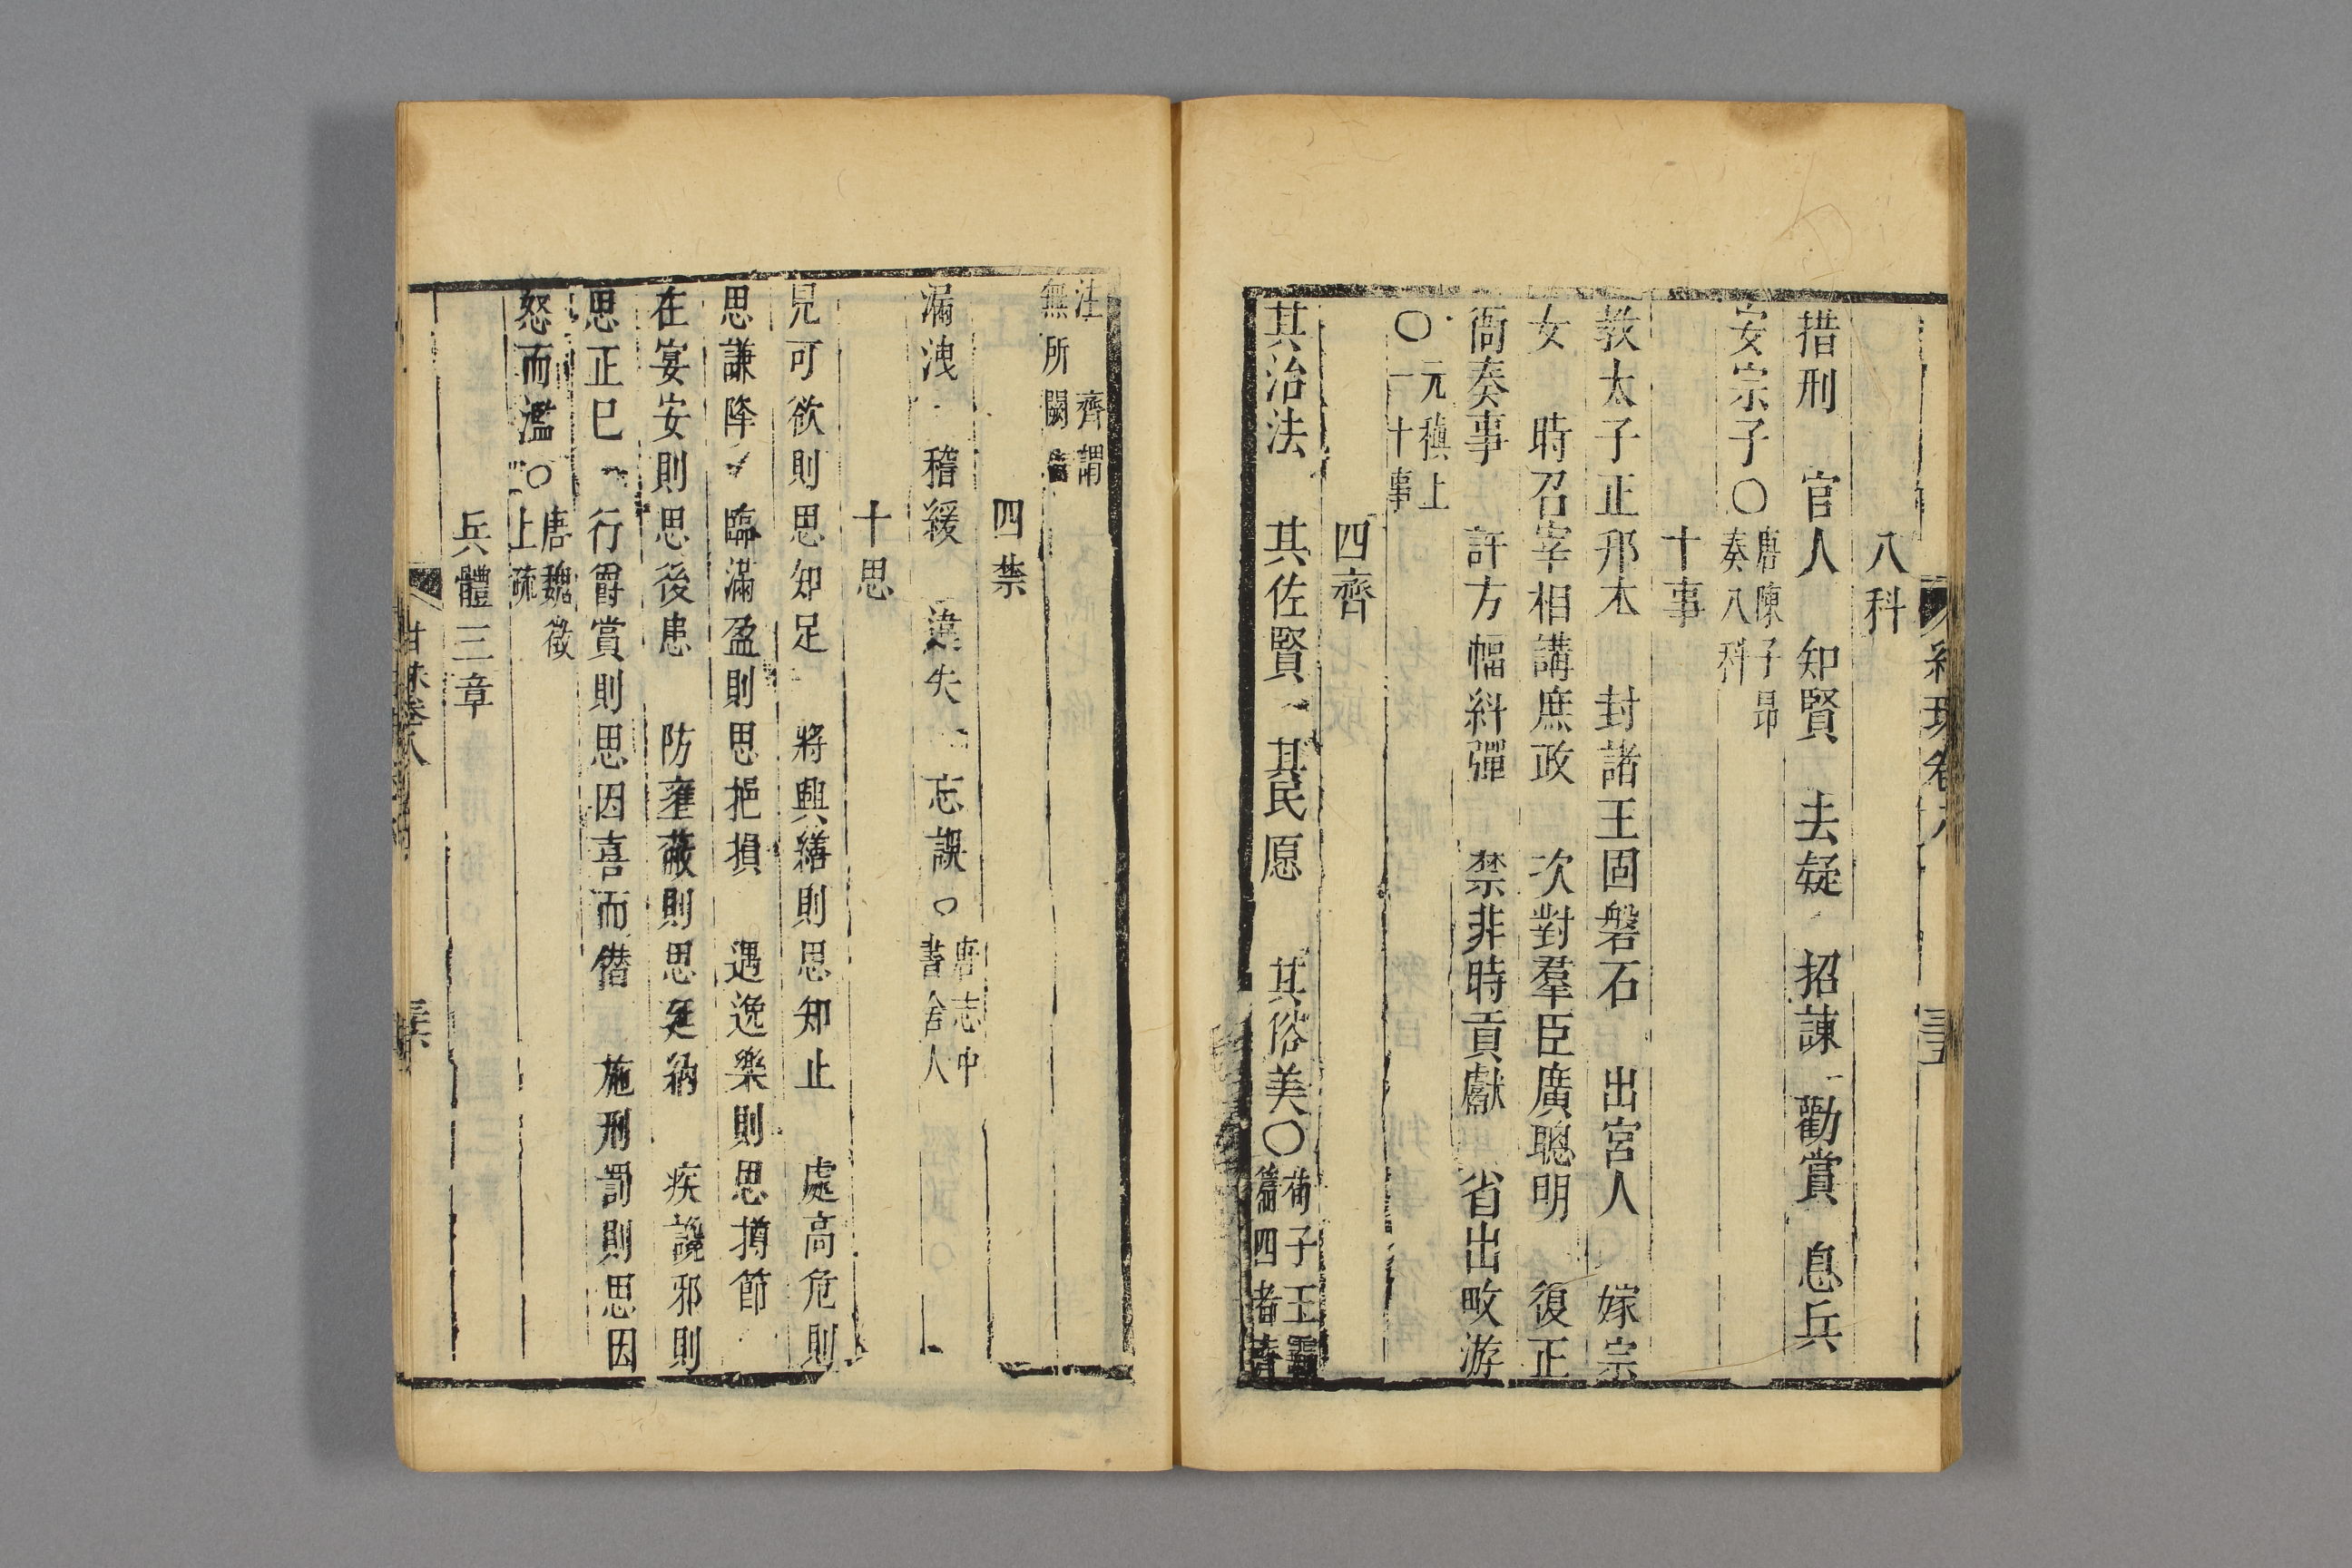 八科
措刑　官人　知賢　去疑　招諫　勸賞　息兵
安宗子〇唐陳子昂奏八科
十事
教太子正邦本　封諸王固磐石　出宮人　嫁宗
女　時召宰相講庶政　次對羣臣廣聰明　復正
衙奏事　許方幅糾彈　禁非時貢獻　省出畋游
〇元稹上一十事
四齊
其治法　其佐賢　其民愿　其俗美〇荀子王霸篇四者齊
注　齊謂無所闕
四禁
漏洩　稽緩　違失　忘誤〇唐志中書舍人
十思
見可欲則思知足　將興繕則思知止　處高危則
思謙降　臨滿盈則思挹損　遇逸樂則思撙節
在宴安則思後患　防壅蔽則思延納　疾讒邪則
思正己　行爵賞則思因喜而僭　施刑罰則思因
怒而濫〇唐魏徵上疏
兵體三章